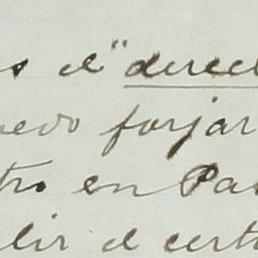 s el "derec
uedo forjar
tro en Pa
lir el cert